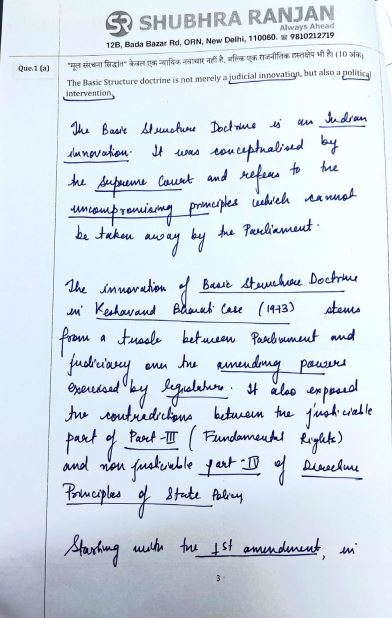 SHUBHRA RANJAN
Always Ahead
12B, Bada Bazar Rd, ORN, New Delhi, 110060. ☎ 9810212719
Que.1 (a)
"मूल संरचना सिद्धांत" केवल एक न्यायिक नवाचार नहीं है, बल्कि एक राजनीतिक हस्तक्षेप भी है। (10 अंक)
The Basic Structure doctrine is not merely a judicial innovation, but also a political
intervention.
The Basic Structure Doctrine is an Indian
innovation. It was conceptualised by
the Supreme Court and refers to the
uncompromising principles which cannot
be taken away by the Parliament.
The innovation of Basic Structure Doctrine
in Keshavand Bharati Case (1973) stems
from a tussle between Parliament and
judiciary over the amending powers
exercised by legislature. It also exposed
the contradictions between the justiciable
part of Part-III (Fundamental Rights)
and non justiciable part-IV of Directive
Principles of State Policy
Starting with the 1st amendment, in
3